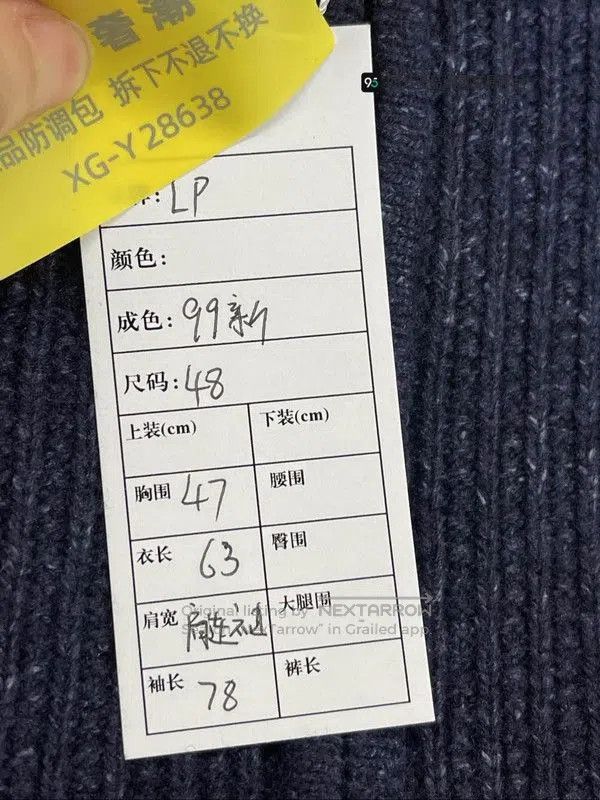 奢潮
品防调包 拆下不退不换
XG-Y 28638
95
: LP
颜色:
成色: 99新
尺码: 48
上装(cm) 下装(cm)
胸围 47 腰围
衣长 63 臀围
肩宽 大腿围
Original listing by NEXTARROW
arrow" in Grailed app.
袖长 78 裤长